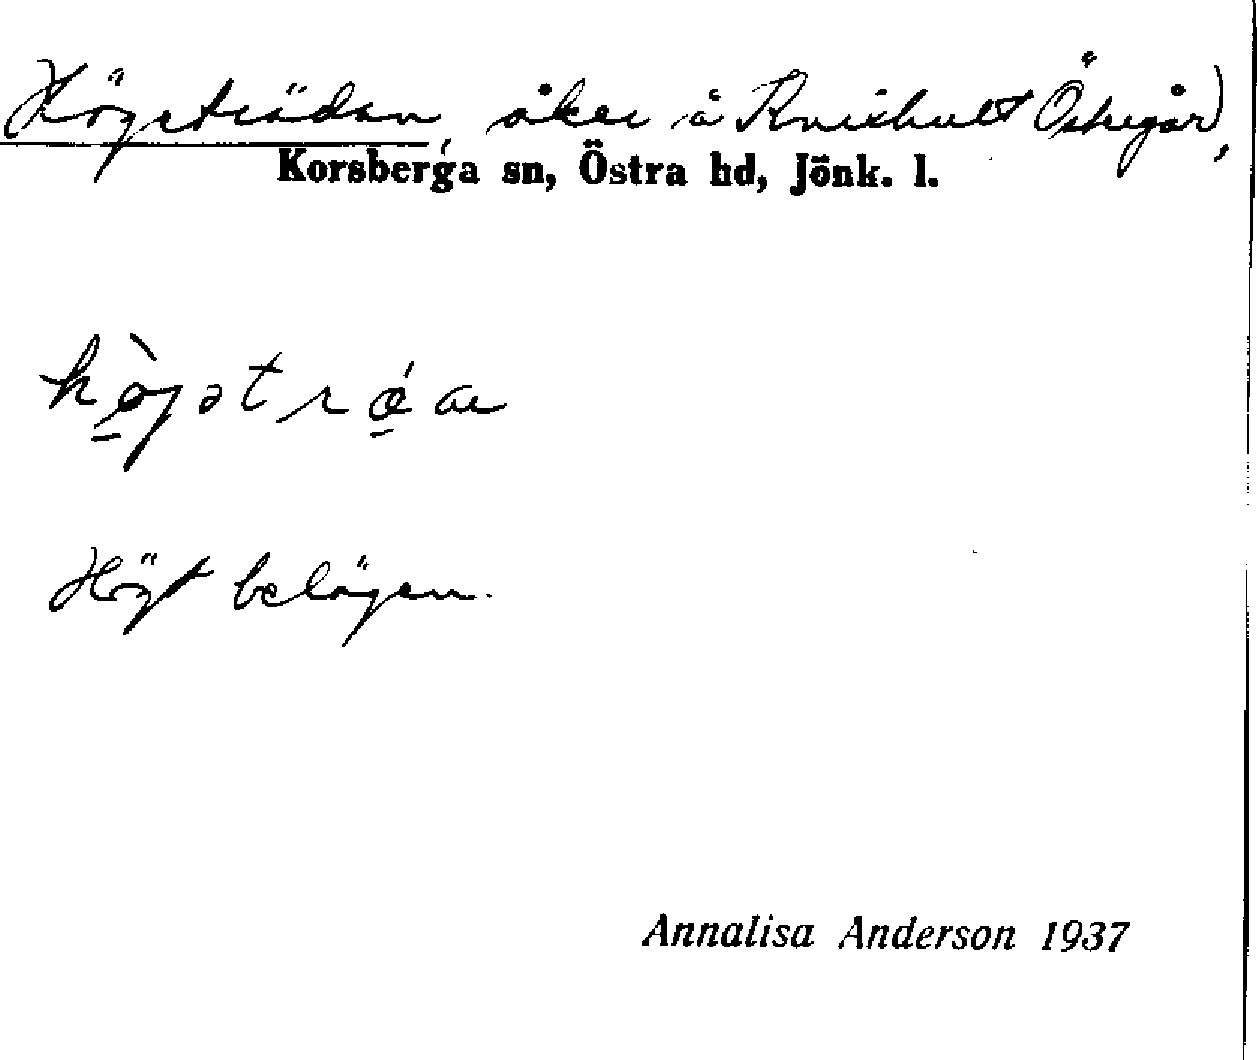 Högeträdan, åker å Knishult Östregård,
Korsberga sn, Östra hd, Jönk. l.
Högt belägen.
Annalisa Anderson 1937